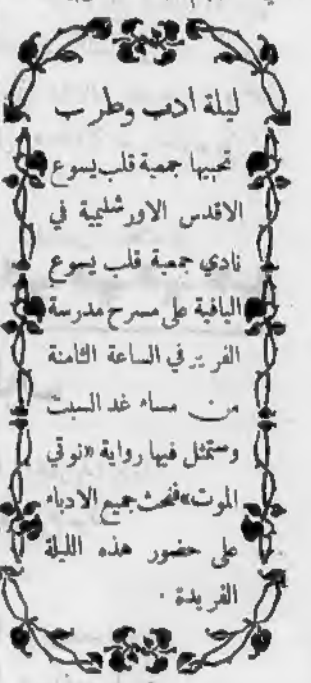 ليلة أدب وطرب
تحييها جمعية قلب يسوع
الاقدس الاورشليمية في
نادي جمعية قلب يسوع
اليافية على مسرح مدرسة
الفرير في الساعة الثامنة
من مساء غد السبت
وستمثل فيها رواية «نوتي
الموت» فنحث جميع الادباء
على حضور هذه الليلة
الفريدة ·